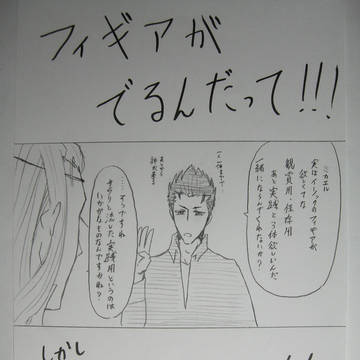 フィギアが
でるんだって!!!
ミカエル
実はインジックのフィギアが
欲しくてな
観賞用・保存用
あと実践と3体欲しいんだ
一緒にならんでくれないか?
……そうですね
さらりと流した実践用というのは
いかがなものなんですかね?
しかし